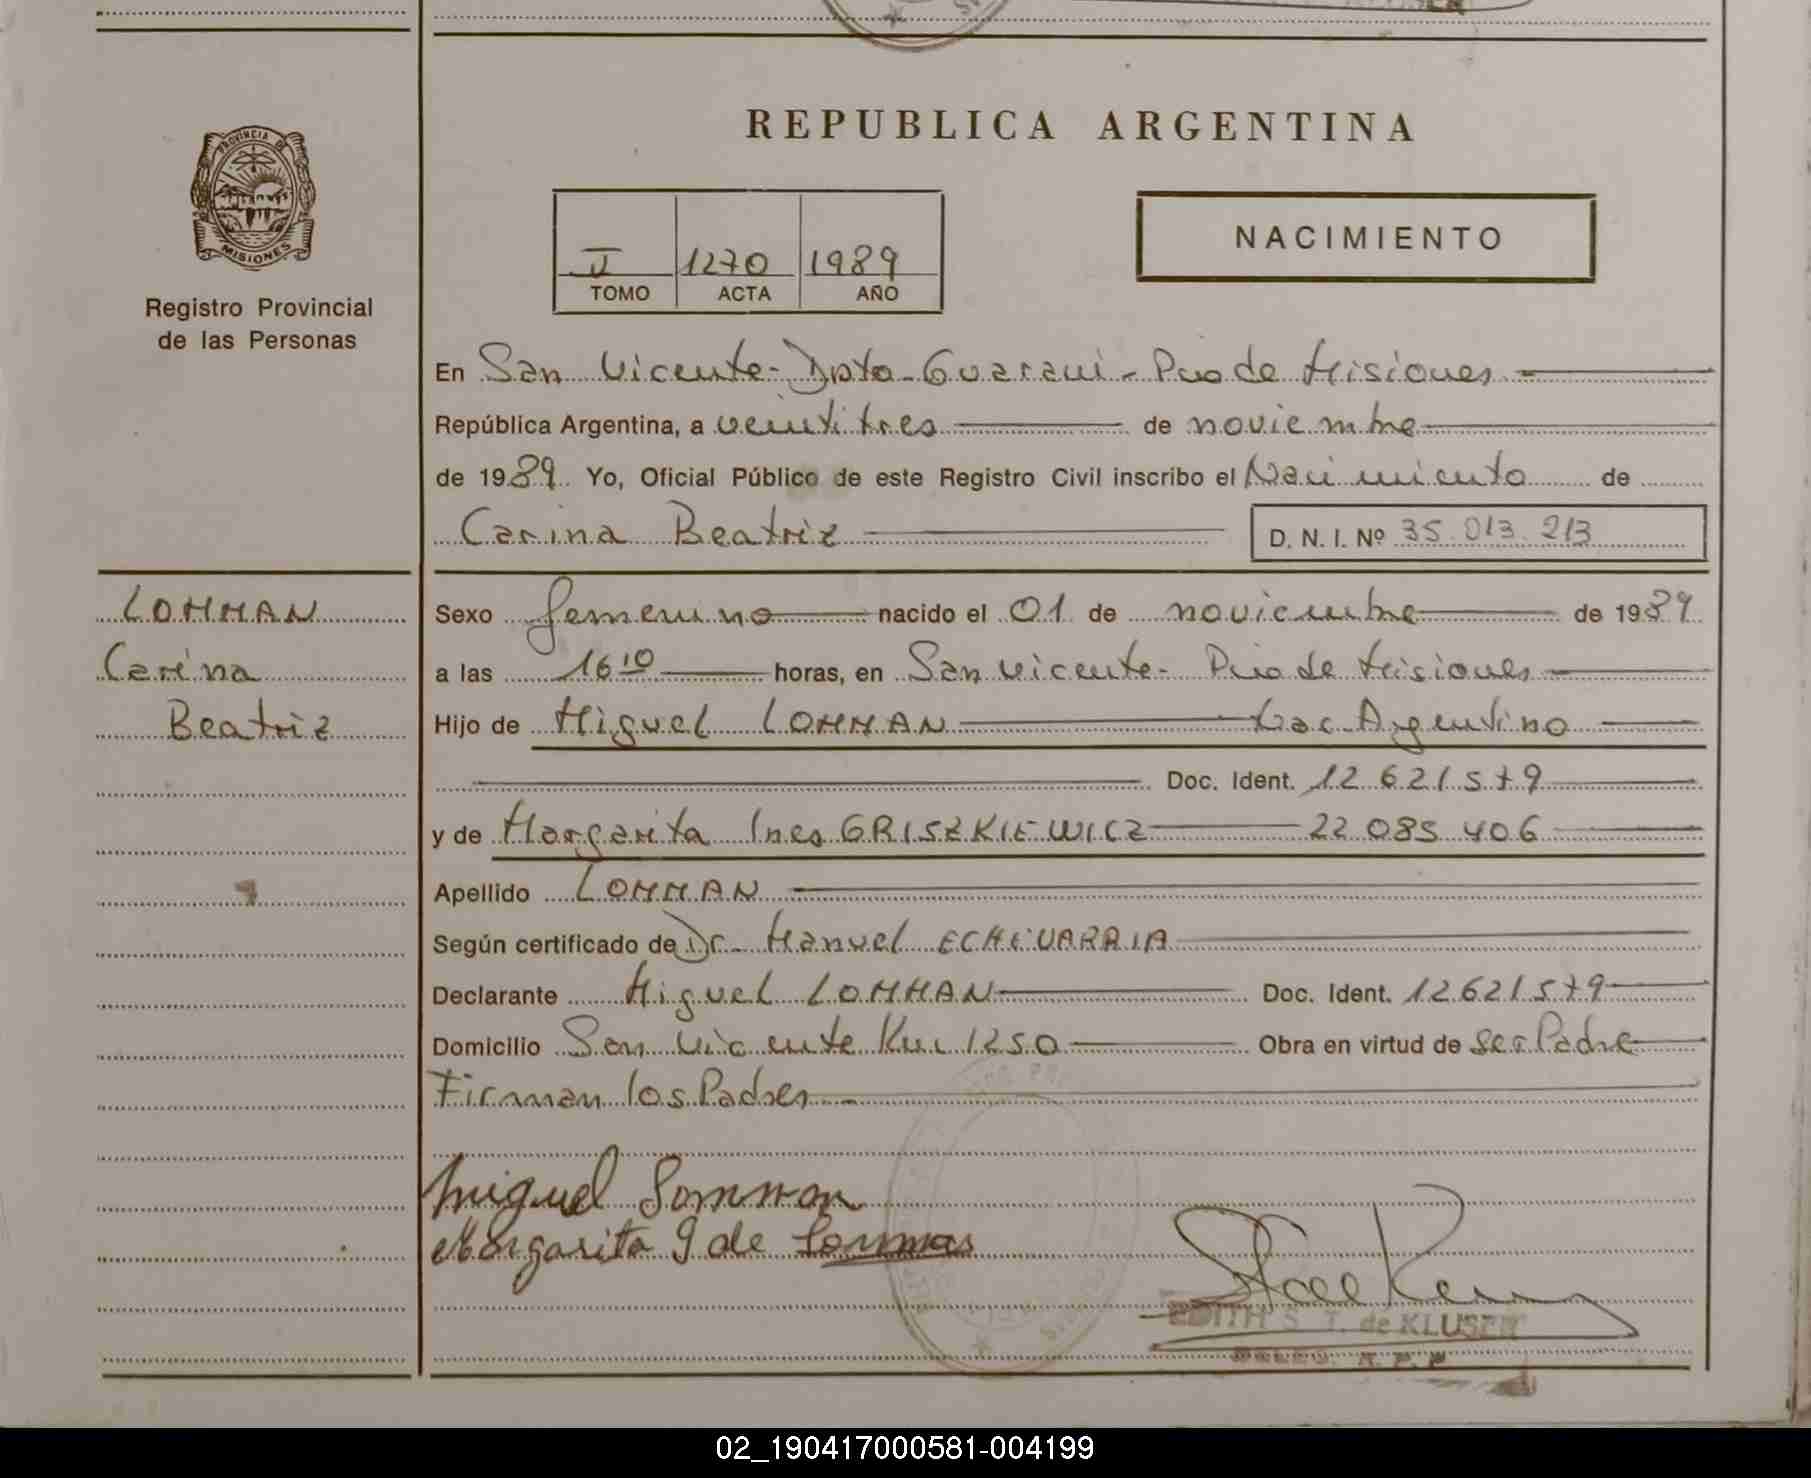 REPUBLICA ARGENTINA
PROVINCIA DE
MISIONES
Registro Provincial
de las Personas
II 1270 1989
TOMO ACTA AÑO
NACIMIENTO
En San Vicente - Dpto - Guarani - Pcia de Misiones
República Argentina, a veintitres de noviembre
de 1989 Yo, Oficial Público de este Registro Civil inscribo el Nacimiento de
Carina Beatriz D. N. I. Nº 35.013.213
LOMMAN
Carina
Beatriz
Sexo femenino nacido el 01 de noviembre de 1989
a las 16 10 horas, en San Vicente - Pcia de Misiones
Hijo de Miguel LOMMAN Nac. Argentino
Doc. Ident. 12 621 579
y de Margarita Ines GRISZKIEWICZ 22 085 406
Apellido LOMMAN
Según certificado de Dr. Manuel ECHEVARRIA
Declarante Miguel LOMMAN Doc. Ident. 12 621 579
Domicilio San Vicente Km 1250 Obra en virtud de ser Padre
Firman los Padres
Miguel Lomman
Margarita G de Lomman
EDITH S. T. de KLUSER
DELEG. R. P. P.
02_190417000581-004199